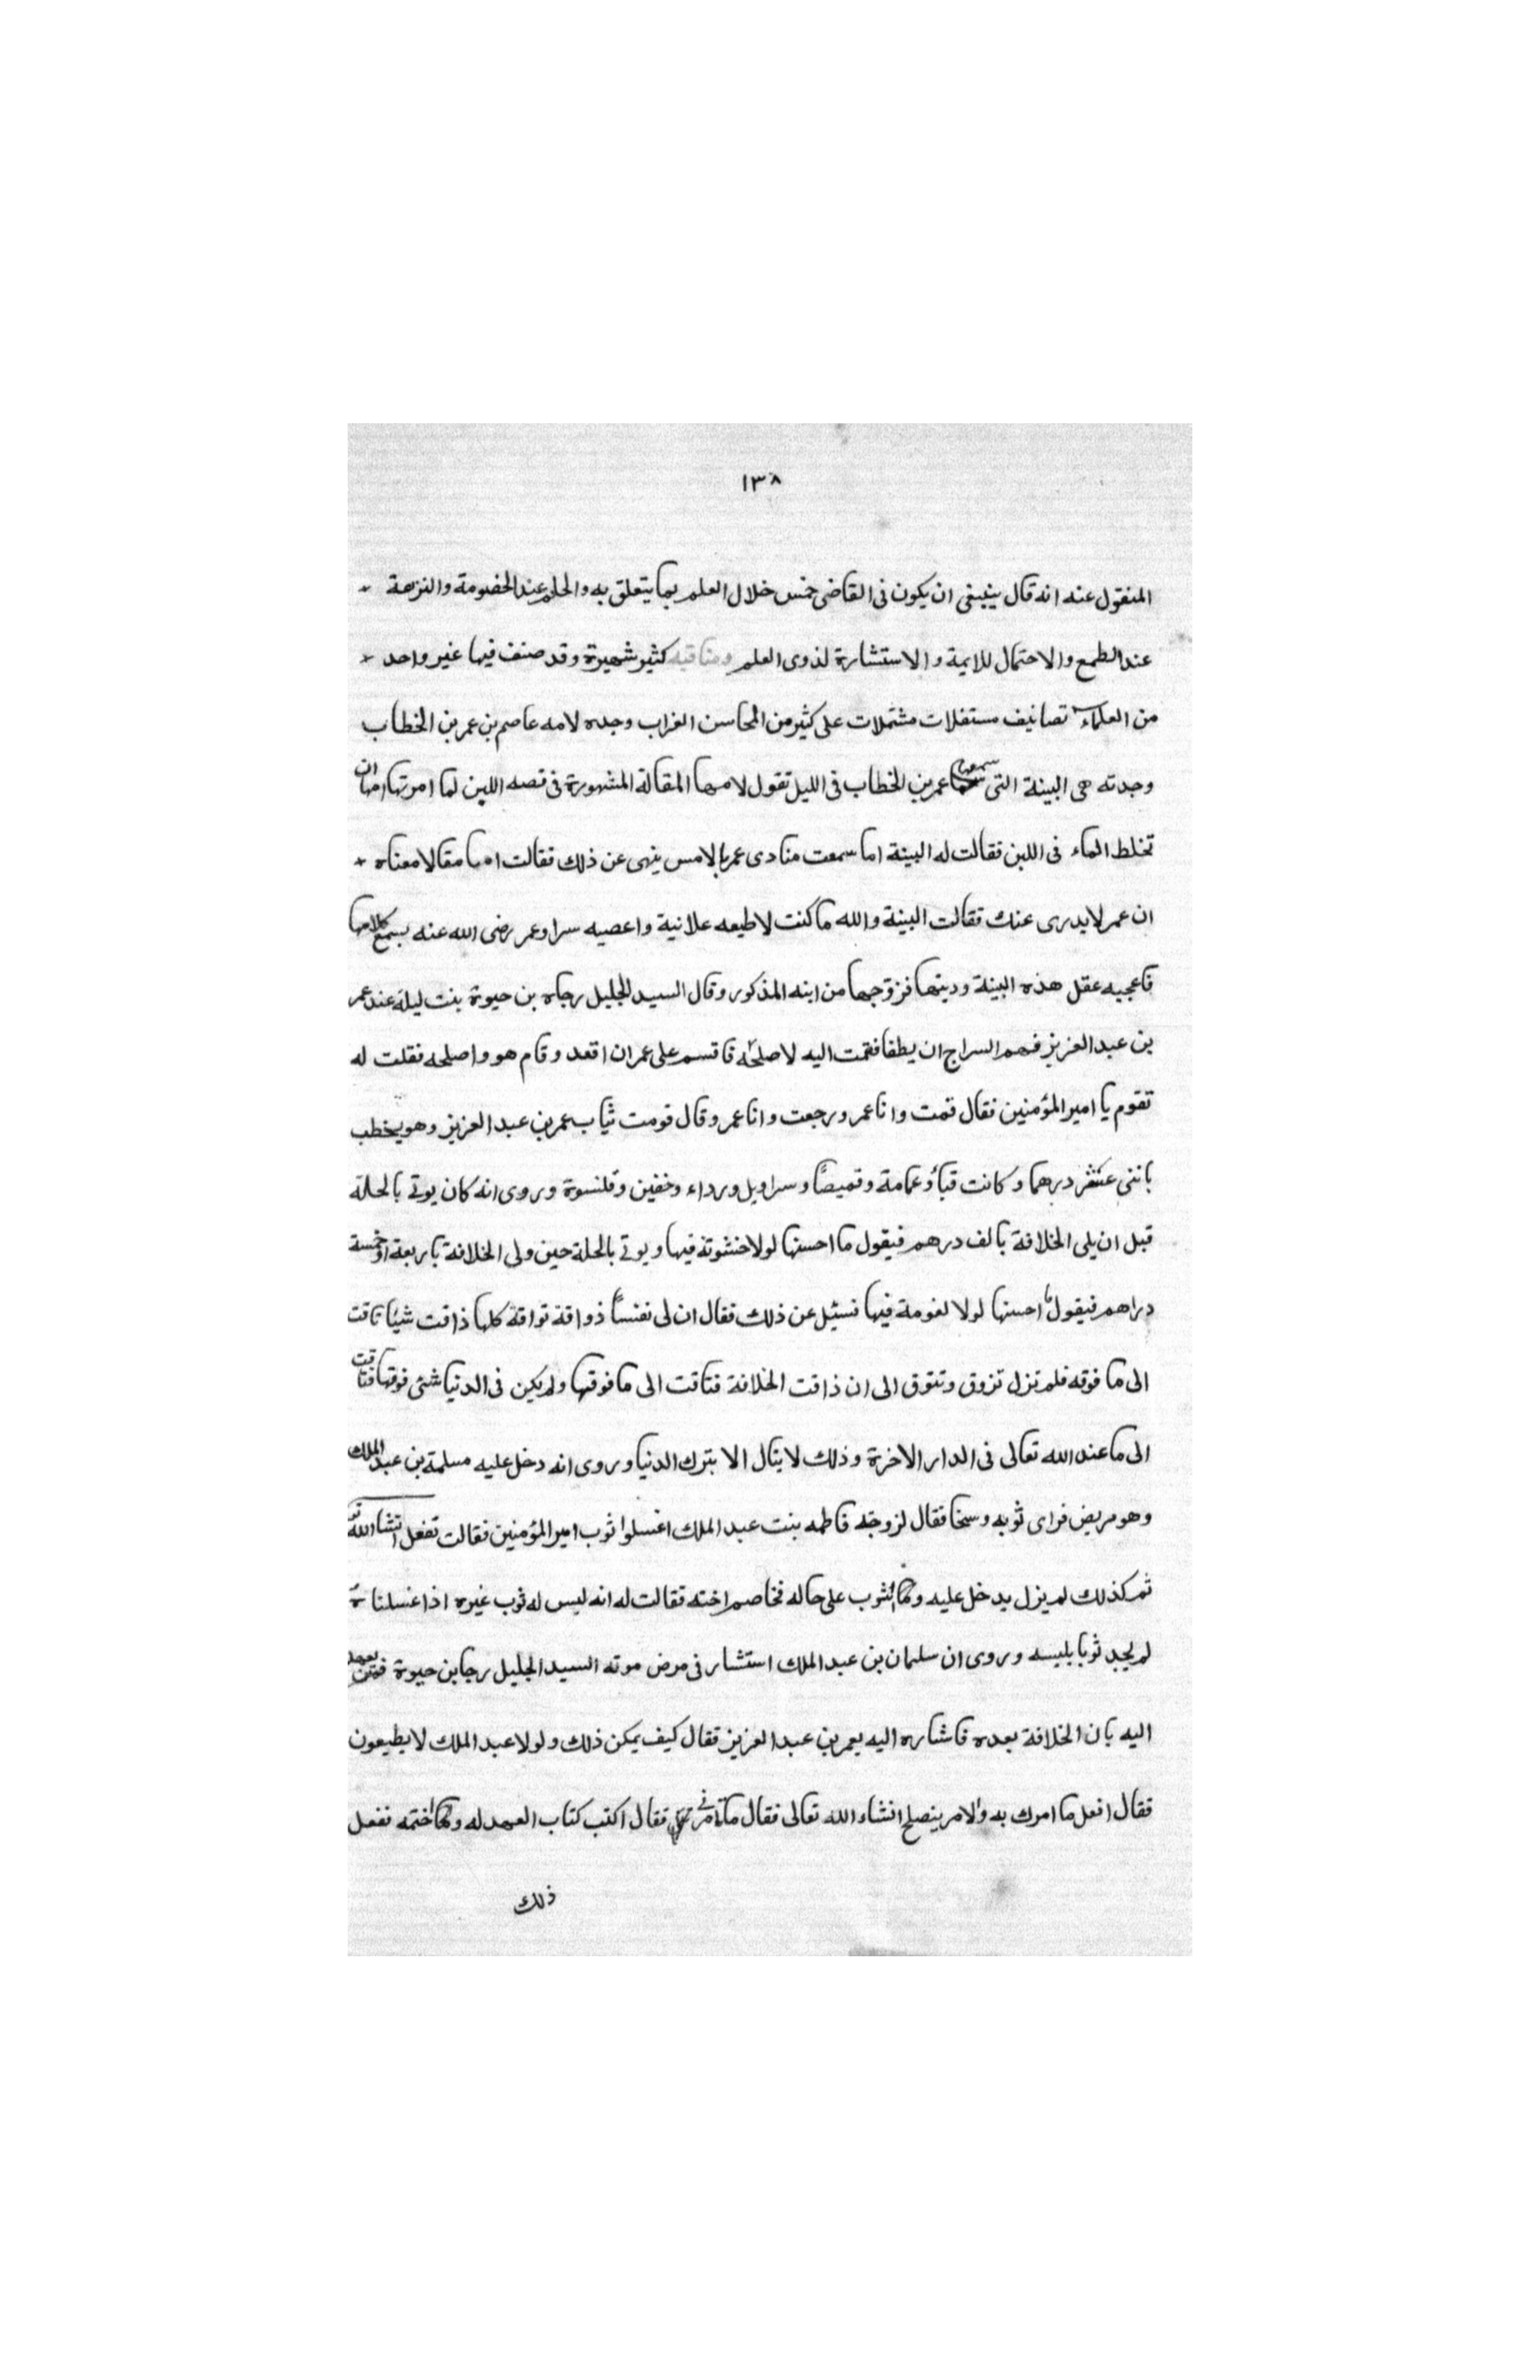 ١٣٨
المنقول عنه انه قال ينبغى ان يكون فى القاضى خمس خلال العلم بما يتعلق به والحلم عند الخصومة والنزهة
عند الطمع والاحتمال للايمة والاستشارة لذوى العلم ومناقبه كثير شهيرة وقد صنف فيها غير واحد
من العلماء تصانيف مستقلات مشتملات على كثير من المحاسن الغراب وجده لامه عاصم بن عمر بن الخطاب
وجدته هى البينة التى سمعها عمر بن الخطاب فى الليل تقول لامها المقالة المشهورة فى قصه اللبن لما امرتها امها ان
تخلط الماء فى اللبن فقالت له البينة اما سمعت منادى عمر بالامس ينهى عن ذلك فقالت امها مقالا معناه
ان عمر لا يدرى عنك فقالت البينة والله ما كنت لاطيعه علانية واعصيه سرا وعمر رضى الله عنه يسمع كلامها
فاعجبه عقل هذه البينة ودينها فزوّجها من ابنه المذكور وقال السيد الجليل رجاه بن حيوة بنت ليلة عند عمر
بن عبد العزيز فهم السراج ان يطفا فقمت اليه لاصلحه فاقسم على عمر ان اقعد وقام هو واصلحه فقلت له
تقوم يا امير المؤمنين فقال قمت وانا عمر ورجعت وانا عمر وقال قومت ثياب عمر بن عبد العزيز وهو يخطب
باثنى عشر درهما وكانت قبأ وعمامة وقميصًا وسراويل ورداء وخفين وقلنسوة وروى انه كان يوتى بالحلة
قبل ان يلى الخلافة بالف درهم فيقول ما احسنها لولا خشونة فيها ويوتى بالحلة حين ولى الخلافة باربعة او خمسة
دراهم فيقول ما احسنها لولا لغومة فيها فسئل عن ذلك فقال ان لى نفسًا ذواقة تواقة كلها ذاقت شيئا تاقت
الى ما فوقه فلم تزل تزوق وتتوق الى ان ذاقت الخلافة فتاقت الى ما فوقها ولم يكن فى الدنيا شئ فوقها فتاقت
الى ما عند الله تعالى فى الدار الاخرة وذلك لا ينال الا بترك الدنيا وروى انه دخل عليه مسلمة بن عبد الملك
وهو مريض فراى ثوبه وسخا فقال لزوجته فاطمه بنت عبد الملك اغسلوا ثوب امير المؤمنين فقالت نفعل انشاء الله
ثم كذلك لم يزل يدخل عليه والثوب على حاله فخاصم اخته فقالت له انه ليس له ثوب غيره اذا غسلناه
لم يجد ثوبا يلبسه وروى ان سليمان بن عبد الملك استشار فى مرض موته السيد الجليل رجا بن حيوة فمن يعهد
اليه بان الخلافة بعده فاشاره اليه بعمر بن عبد العزيز فقال كيف يمكن ذلك ولولا عبد الملك لا يطيعون
فقال افعل ما امرك به والامر ينصلح انشاء الله تعالى فقال ما تامرنى فقال اكتب كتاب العهد له واختمه ففعل
ذلك